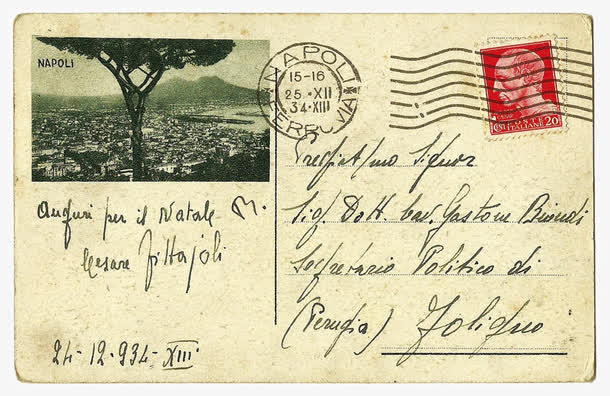 NAPOLI
NAPOLI
15-16
25·XII
34·XIII
FERROVIA
POSTE ITALIANE 20
Auguri per il Natale
Cesare
24-12-934-XIII
Pregiat/mo Signor
Sig. Dott. Cav. Gastone Biondi
Segretario Politico di
(Perugia) Foligno